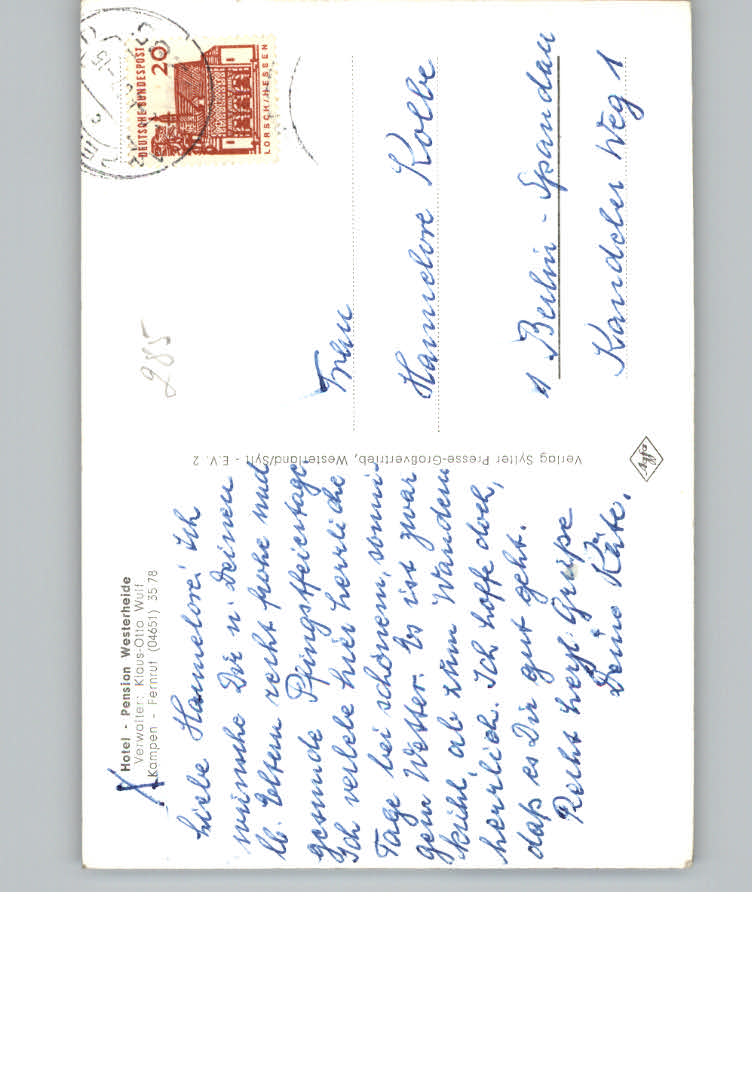 Hotel · Pension Westerheide
Verwalter: Klaus-Otto Wulf
Kampen - Fernruf (04651) 35 78
Liebe Hannelore! Ich
wünsche Dir u. Deinen
lb. Eltern recht frohe und
gesunde Pfingstfeiertage
Ich verlebe hier herrliche
Tage bei schönem, sonni-
gem Wetter. Es ist zwar
kühl, ab. zum Wandern
herrlich. Ich hoffe doch,
daß es Dir gut geht.
Recht herzl. Grüße
Deine Käte.
Verlag Sylter Presse-Großvertrieb, Westerland/Sylt - E.V. 2
Agfa
285
DEUTSCHE BUNDESPOST
20
LORSCH/HESSEN
Frau
Hannelore Kolbe
1 Berlin - Spandau
Kandeler Weg 1